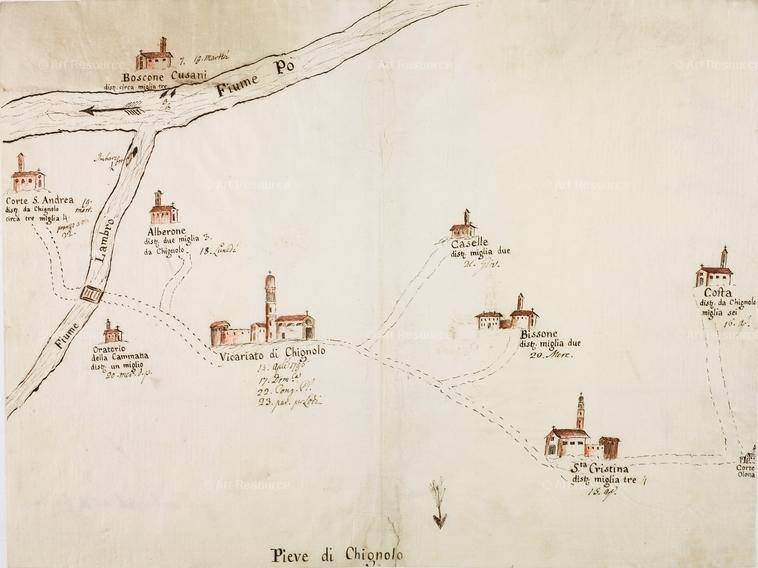 7. 19. Martedì
Boscone Cusani
dist. circa miglia tre
Fiume Pò
Corte S. Andrea
dist. da Chignolo
circa tre miglia 4.
19.
mart.
Fiume Lambro
Alberone
dist. due miglia 3.
da Chignolo 18. Lunedì
Oratorio
della Cammata
dist. un miglio
Vicariato di Chignolo
17. Dom.ca
22. Cong. PP.
Caselle
dist. miglia due
Bissone
dist. miglia due
20. Merc.
Costa
dist. da Chignolo
miglia sei
16. Ap.
Sta Cristina
dist. miglia tre 4
15. ap.
Corte
Olona
Pieve di Chignolo
© Art Resource